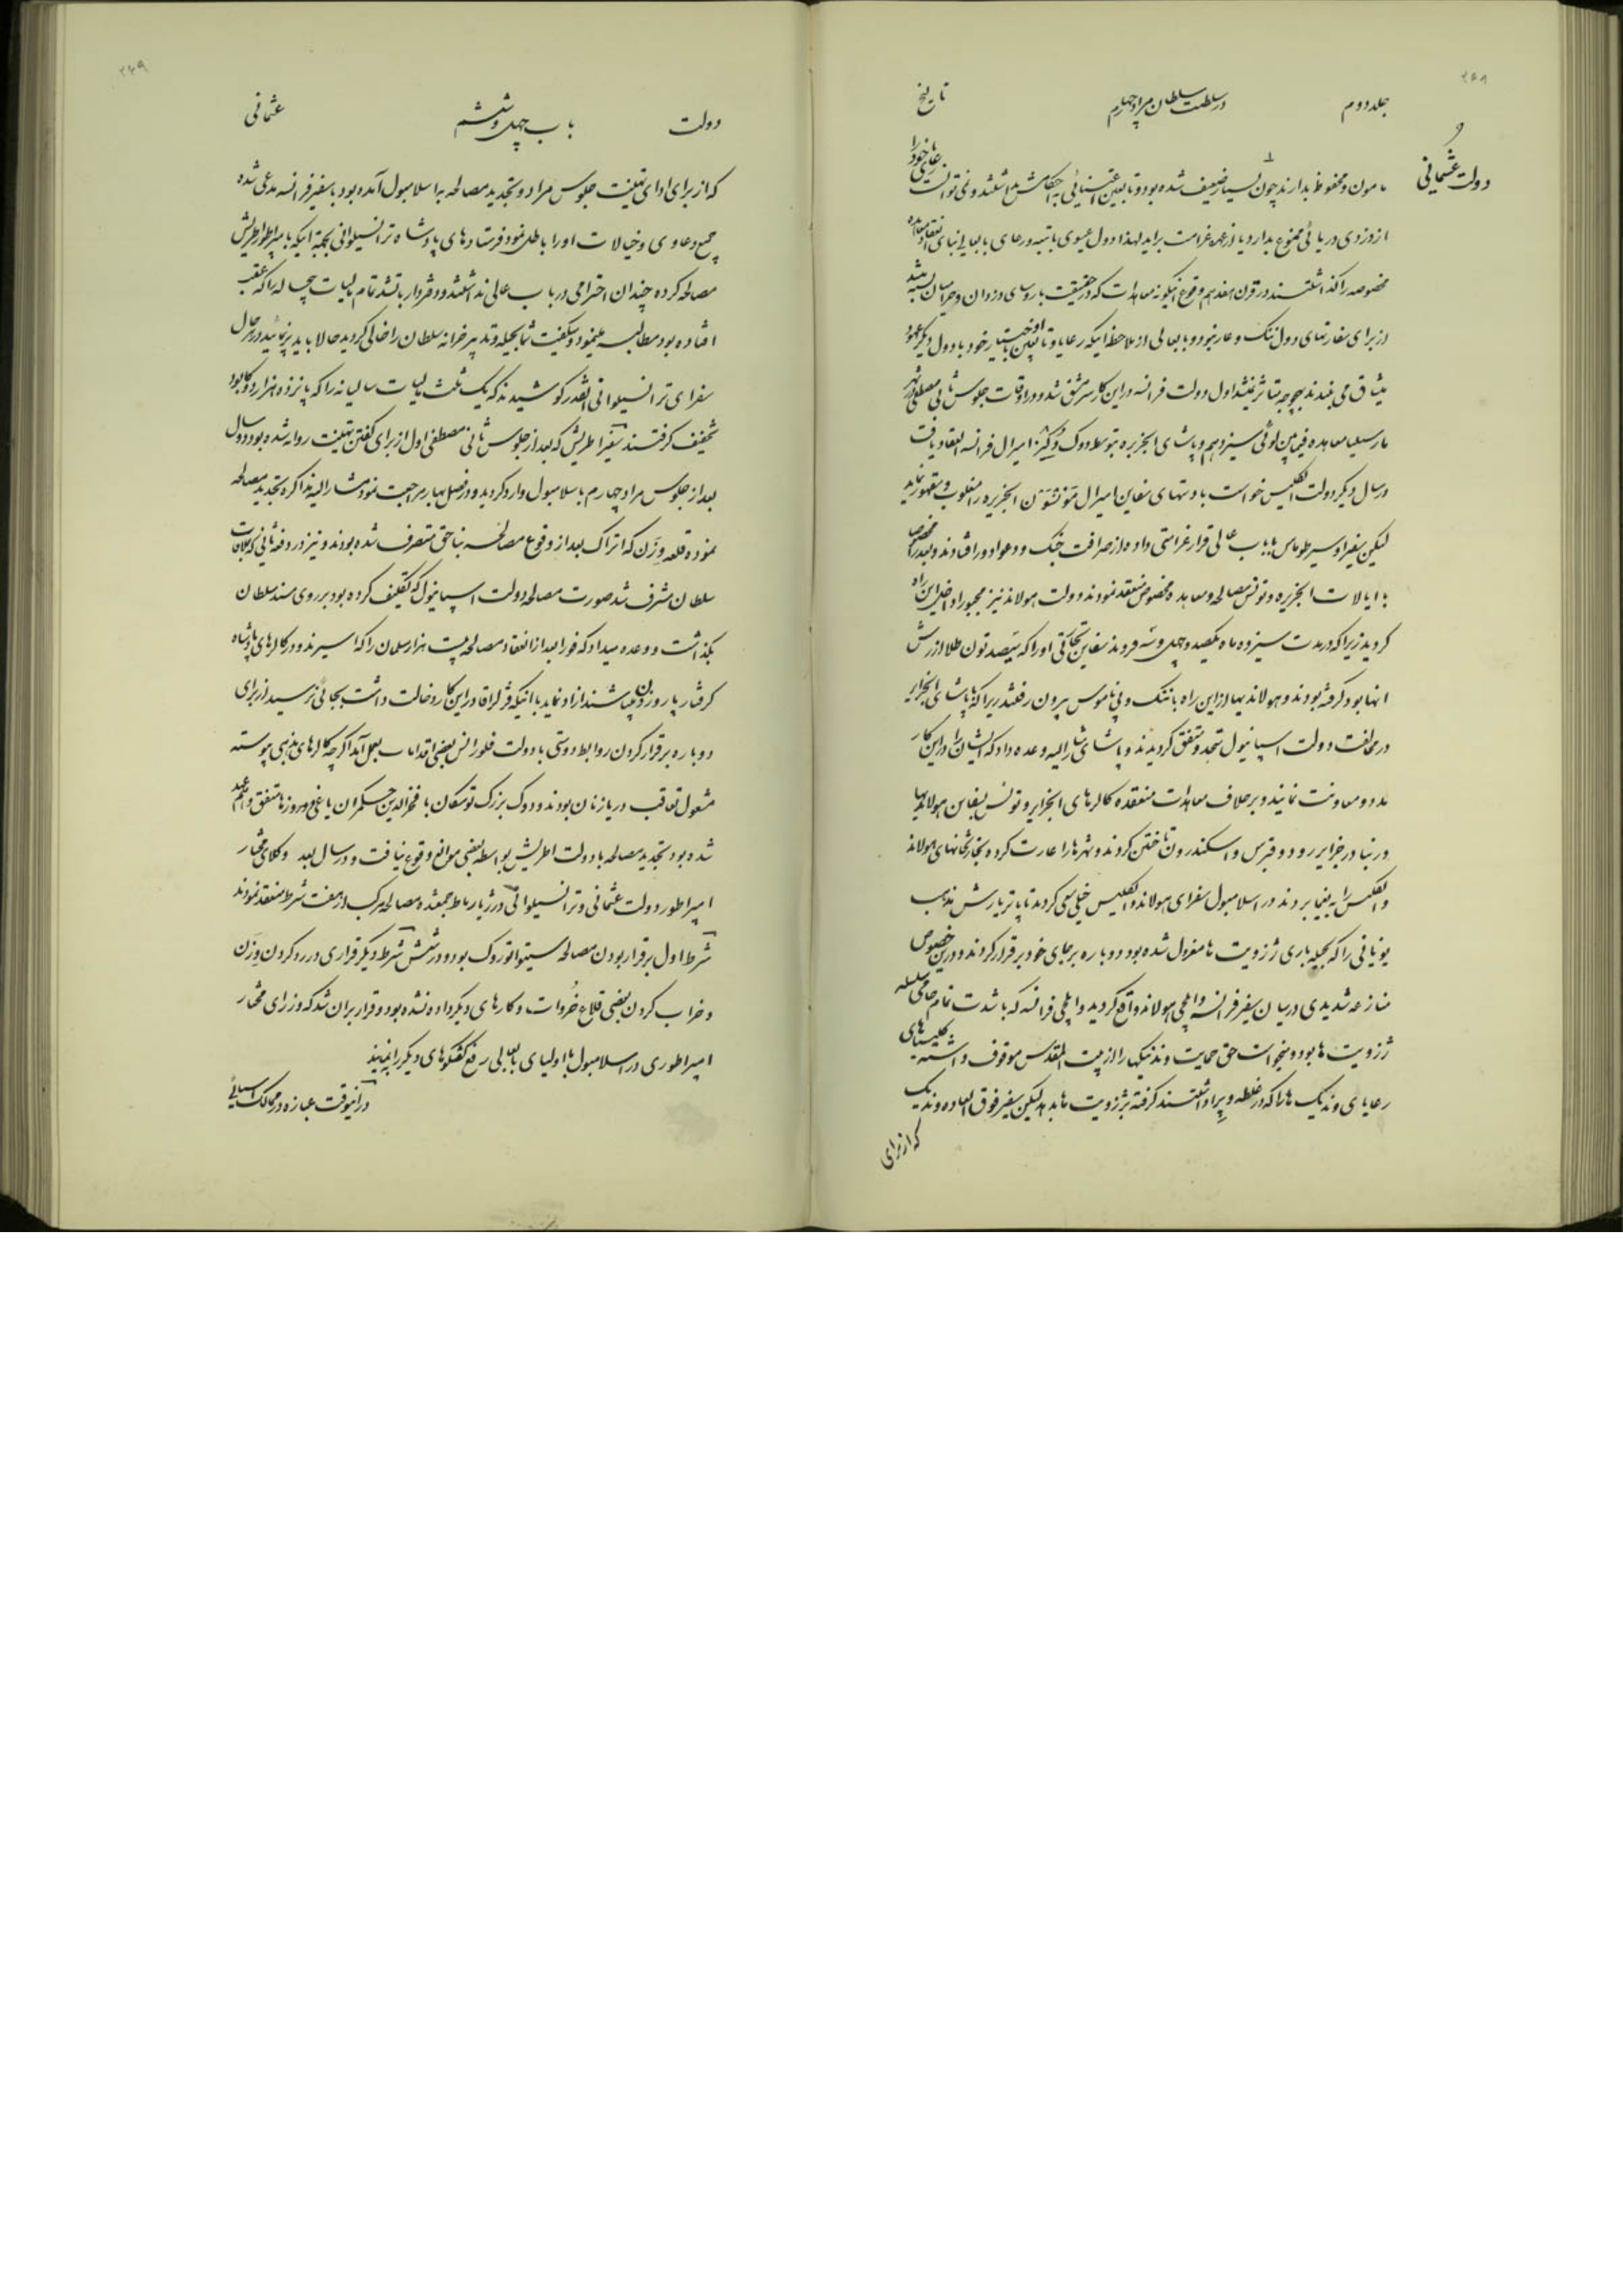 ۲۶۸
جلد دوم در سلطنت سلطان مراد چهارم تاریخ
دولت عثمانی
مامون و محفوظ بدارند چون بسیار ضعیف شده بود و تابعین اعتنائی به احکامش نداشتند و نمی توانست رعایای خود را
از دزدی دریائی ممنوع بدارد و یا از عهده غرامت براید لهذا دول عیسوی با تبعه و رعایای بابعالی بنای انعقاد معاهده
مخصوصه را گذاشتند در قرن هفدهم وقوع اینگونه معاهدات که در حقیقت با روسای دزدان و حرامیان بسته میشد
از برای سفارتهای دول ننگ و عار نبود و بابعالی از ملاحظه اینکه رعایا و تابعین باختیار خود با دول دیگر عهود و
میثاق می بندند بهیچوجه متاثر نمیشد اول دولت فرانسه در این کار سرمشق شد و در اوقات جلوس ثانی مصطفی در شهر
مارسیلیا معاهده فیمابین لوئی سیزدهم و پاشای الجزیره بتوسط دوک دُگیز امیرال فرانسه انعقاد یافت
در سال دیگر دولت انگلیس خواست با دستهای سفاین امیرال مَونْسَوْن الجزیره را مغلوب و مقهور نماید
لیکن سفیر او سیر طوماس با باب عالی قرار غرامتی داده از صرافت جنگ و دعوا دور افتادند و بعد از آن مخصوصا
با ایالات الجزیره و تونس مصالحه و معاهده مخصوص منعقد نمودند و دولت هولاند نیز مجبورا داخل این راه
کردید زیرا که در مدت سیزده ماه یکصد و چهل و سه فروند سفاین تجارتی او را که سیصد تون طلا ارزش
انها بود گرفته بودند و هولاندیها از این راه با ننگ و بی ناموس بیرون رفتند زیرا که با پاشای الجزایر
در مخالفت دولت اسپانیول متحد و متفق کردیدند و پاشای مشارالیه وعده داد که ایشان را در این کار
مدد و معاونت نمایند و برخلاف معاهدات منعقده کالرهای الجزایر و تونس بسفاین هولاندیها
در بنادر جزایر رودو و قبرس و اسکندرون تاختن کردند و شهرها را غارت کرده تجارتخانهای هولاند
و انگلیس را به یغما بردند در اسلامبول سفرای هولاند و انگلیس خیلی سعی کردند تا پاتریارش مذهب
یونانی را که بحیله بازی ژزویت ها معزول شده بود دوباره بر جای خود برقرار کردند و در این خصوص
منازعه شدیدی در میان سفیر فرانسه و ایلچی هولاند واقع کردید و ایلچی فرانسه که با شدت تمام حامی سلسله
ژزویت ها بود و میخواست حق حمایت وندیکیها را از بیت المقدس موقوف داشته کلیساهای
رعایای وندیک ها را که در غلطه و پرا داشتند گرفته بژزویت ها بدهد لیکن سفیر فوق العاده وندیک
که از برای
۲۶۹
دولت باب چهل و ششم عثمانی
که از برای ادای تهنیت جلوس مراد و تجدید مصالحه به اسلامبول آمده بود با سفیر فرانسه مدعی شده
جمیع دعاوی و خیالات او را باطل نمود فرستادهای پادشاه ترانسیلوانی بجهة اینکه با امپراطور اطریش
مصالحه کرده چندان احترامی در باب عالی نداشتند و دفتردار باشد تمام مالیات پنج ساله را که عقب
افتاده بود مطالبه مینمود و میگفت شما بحیله و تدبیر خزانه سلطان را خالی کردید حالا باید پر نمائید در هر حال
سفرای ترانسیلوانی آنقدر کوشیدند که یک ثلث مالیات سالیانه را که پانزده هزار دوکا بود
تخفیف گرفتند سفیر اطریش که بعد از جلوس ثانی مصطفی اول از برای گفتن تهنیت روانه شده بود دو سال
بعد از جلوس مراد چهارم باسلامبول وارد کردید و در فصل بهار مراجعت نمود مشارالیه مذاکره تجدید مصالحه
نموده قلعه وزن که اتراک بعد از وقوع مصالحه بناحق متصرف شده بودند و نیز در دفعه ثانی که بملاقات
سلطان مشرف شد صورت مصالحه دولت اسپانیول را که تکلیف کرده بود بر روی مسند سلطان
بگذاشت و وعده میداد که فورا بعد از انعقاد مصالحه بیست هزار مسلمان را که اسیرند و در کالرهای پادشاه
گرفتار پارو زدن میباشند آزاد نماید با اینکه قزلراقا در این کار دخالت داشت بجائی نرسید از برای
دوباره برقرار کردن روابط دوستی با دولت فلورانس بعضی اقدامات بعمل آمد اگرچه کالرهای مذهبی پیوسته
مشغول تعاقب دریازنان بودند و دوک بزرگ توسکان با فخرالدین حکمران یاغی دروزها متفق و هم عهد
شده بود تجدید مصالحه با دولت اطریش بواسطه بعضی موانع وقوع نیافت و در سال بعد وکلای مختار
امپراطور و دولت عثمانی و ترانسیلوانی در ژیارباط جمع شده مصالحه مرکب از هفت شرط منعقد نمودند
شرط اول برقرار بودن مصالحه سیتواتوروک بود و در شش شرط دیگر قراری در رد کردن وزن
و خراب کردن بعضی قلاع خُروات و کارهای دیگر داده نشده بود و قرار بران شد که وزرای مختار
امپراطوری در اسلامبول با اولیای بابعالی رفع گفتگوهای دیگر را بنمایند
در آنوقت عبازه در ممالک آسیائی